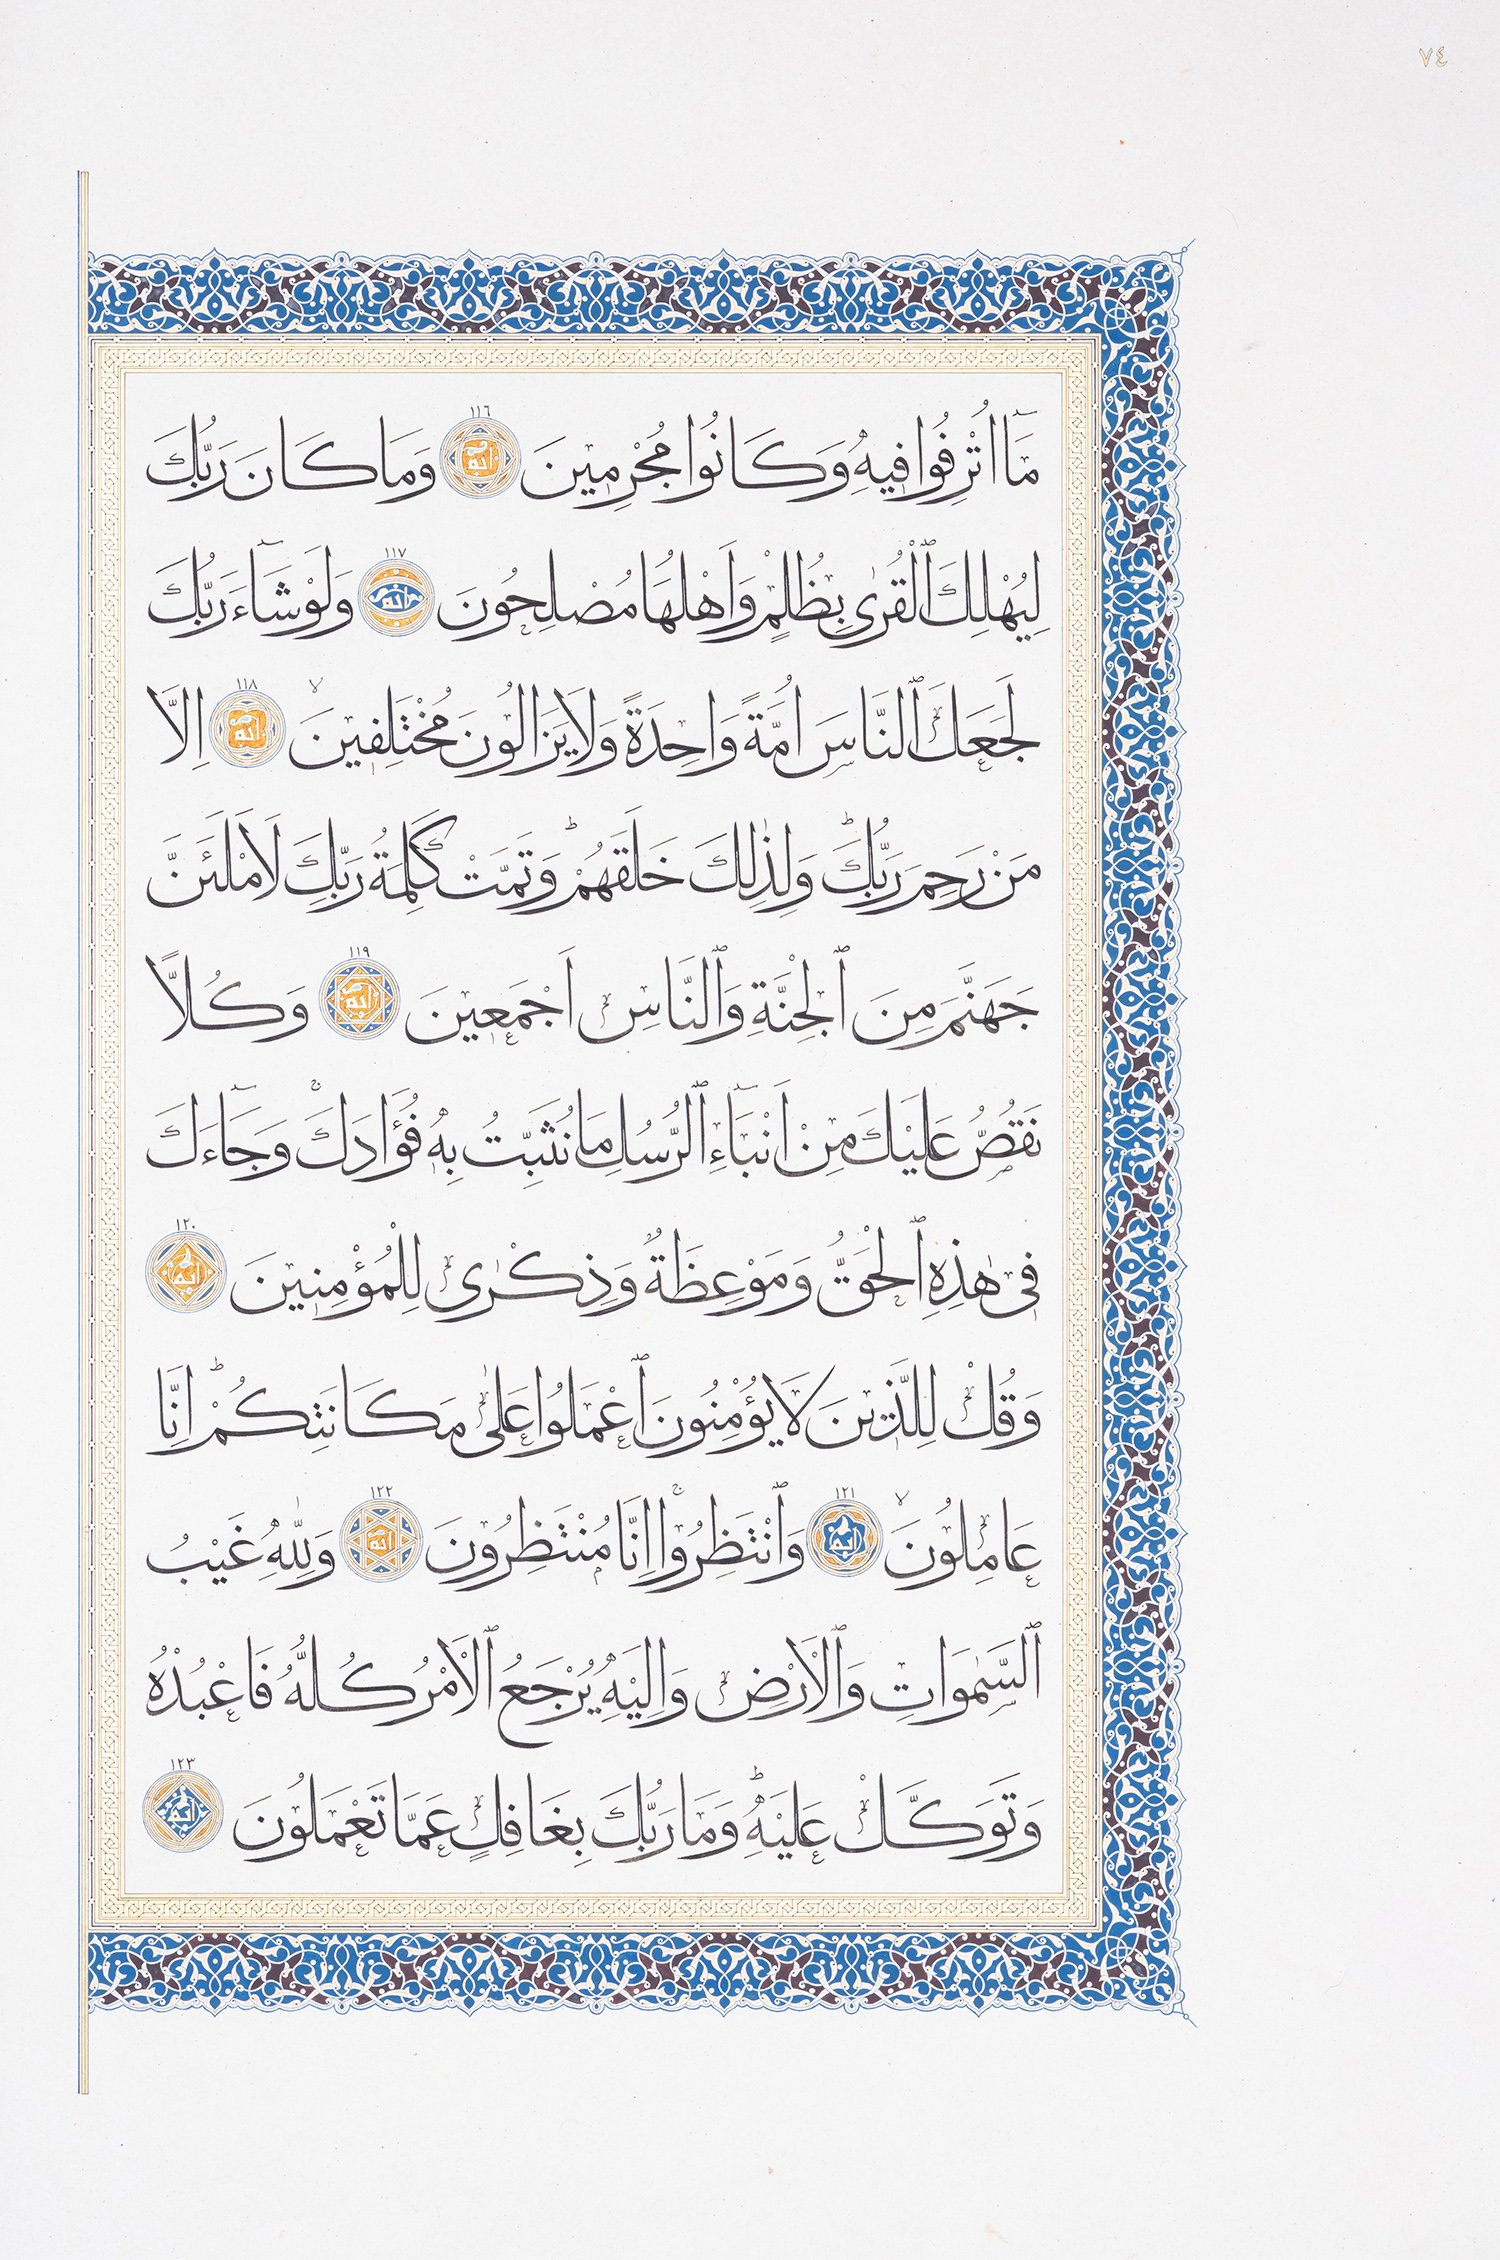 ٧٤
مَٓا اُتْرِفُوا فٖيهِ وَكَانُوا مُجْرِمٖينَ ١١٦ وَمَا كَانَ رَبُّكَ
لِيُهْلِكَ ٱلْقُرٰى بِظُلْمٍ وَاَهْلُهَا مُصْلِحُونَ ١١٧ وَلَوْ شَٓاءَ رَبُّكَ
لَجَعَلَ ٱلنَّاسَ اُمَّةً وَاحِدَةً وَلَا يَزَالُونَ مُخْتَلِفٖينَ ١١٨ اِلَّا
مَنْ رَحِمَ رَبُّكَ وَلِذٰلِكَ خَلَقَهُمْ وَتَمَّتْ كَلِمَةُ رَبِّكَ لَاَمْلَـَٔنَّ
جَهَنَّمَ مِنَ ٱلْجِنَّةِ وَٱلنَّاسِ اَجْمَعٖينَ ١١٩ وَكُلًّا
نَقُصُّ عَلَيْكَ مِنْ اَنْبَٓاءِ ٱلرُّسُلِ مَا نُثَبِّتُ بِهٖ فُؤٰادَكَ وَجَٓاءَكَ
فٖى هٰذِهِ ٱلْحَقُّ وَمَوْعِظَةٌ وَذِكْرٰى لِلْمُؤْمِنٖينَ ١٢٠
وَقُلْ لِلَّذٖينَ لَا يُؤْمِنُونَ ٱعْمَلُوا عَلٰى مَكَانَتِكُمْ اِنَّا
عَامِلُونَ ١٢١ وَٱنْتَظِرُوا اِنَّا مُنْتَظِرُونَ ١٢٢ وَلِلّٰهِ غَيْبُ
ٱلسَّمٰوَاتِ وَٱلْاَرْضِ وَاِلَيْهِ يُرْجَعُ ٱلْاَمْرُ كُلُّهُ فَاعْبُدْهُ
وَتَوَكَّلْ عَلَيْهِ وَمَا رَبُّكَ بِغَافِلٍ عَمَّا تَعْمَلُونَ ١٢٣